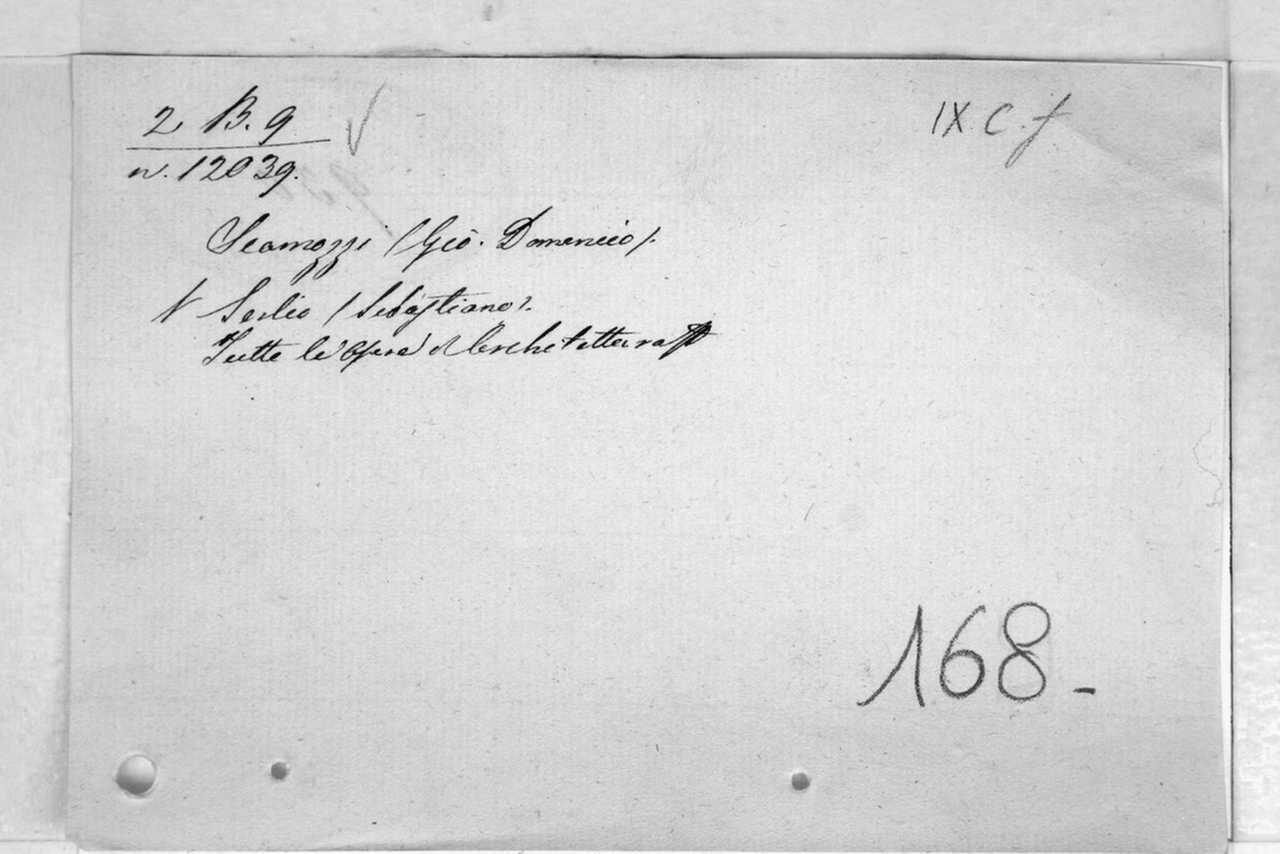 2 B. 9
IX C. f
n. 12039.
Scamozzi (Gio. Domenico).
V Serlio (Sebastiano).
Tutte le Opere d'Architettura
168-